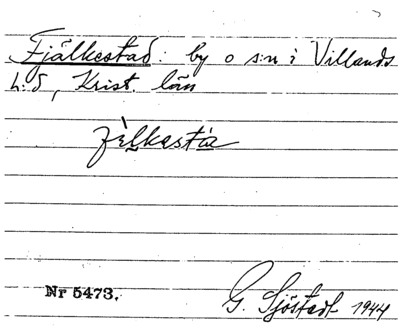 Fjälkestad: by o s:n i Villands
h:d, Krist. län
fjèlkesta
Nr 5473.
G. Sjöstedt 1944